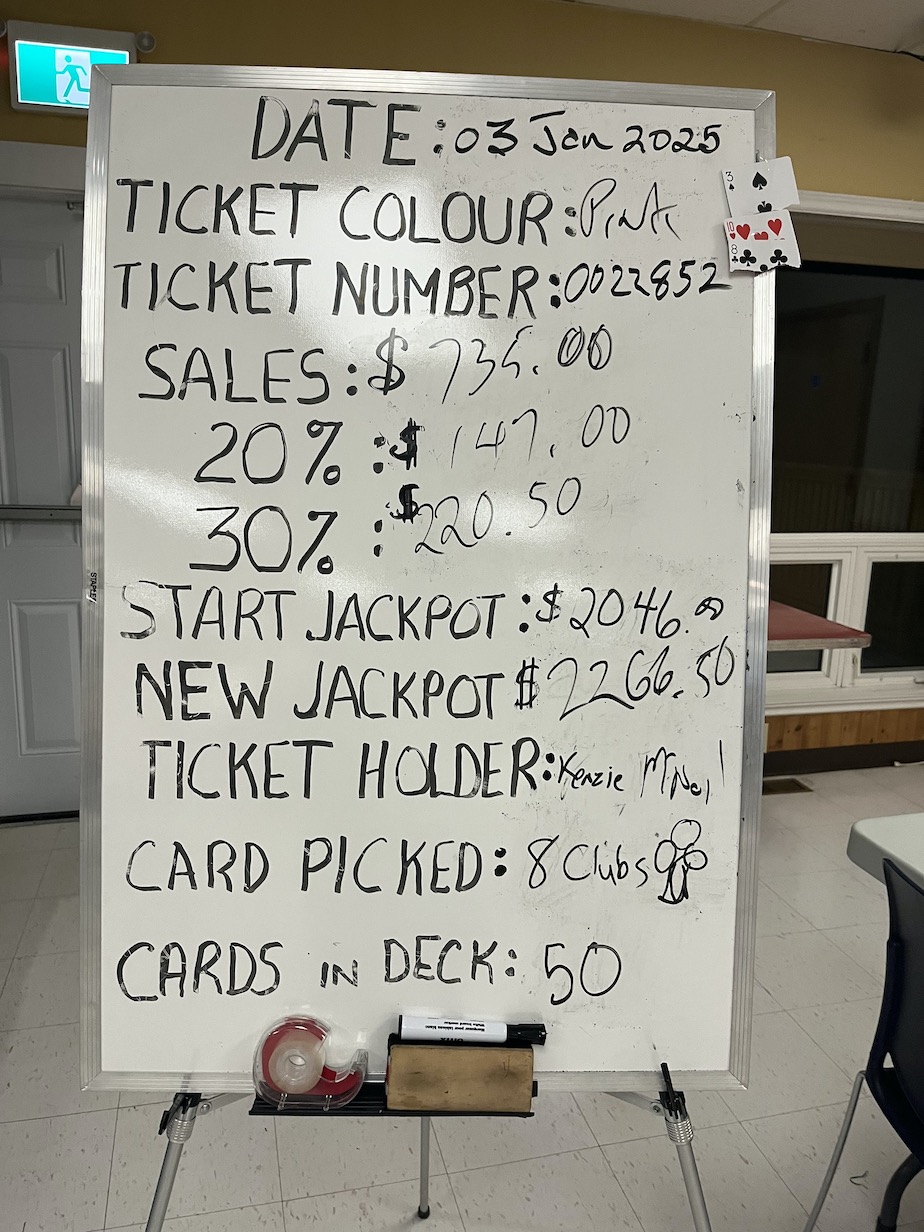 DATE: 03 Jan 2025
TICKET COLOUR: Pink
TICKET NUMBER: 0022852
SALES: $ 735.00
20% : $ 147.00
30% : $220.50
START JACKPOT : $2046.00
NEW JACKPOT $2266.50
TICKET HOLDER: Kenzie
CARD PICKED: 8 Clubs
CARDS IN DECK: 50
3
10
8
STAPLES